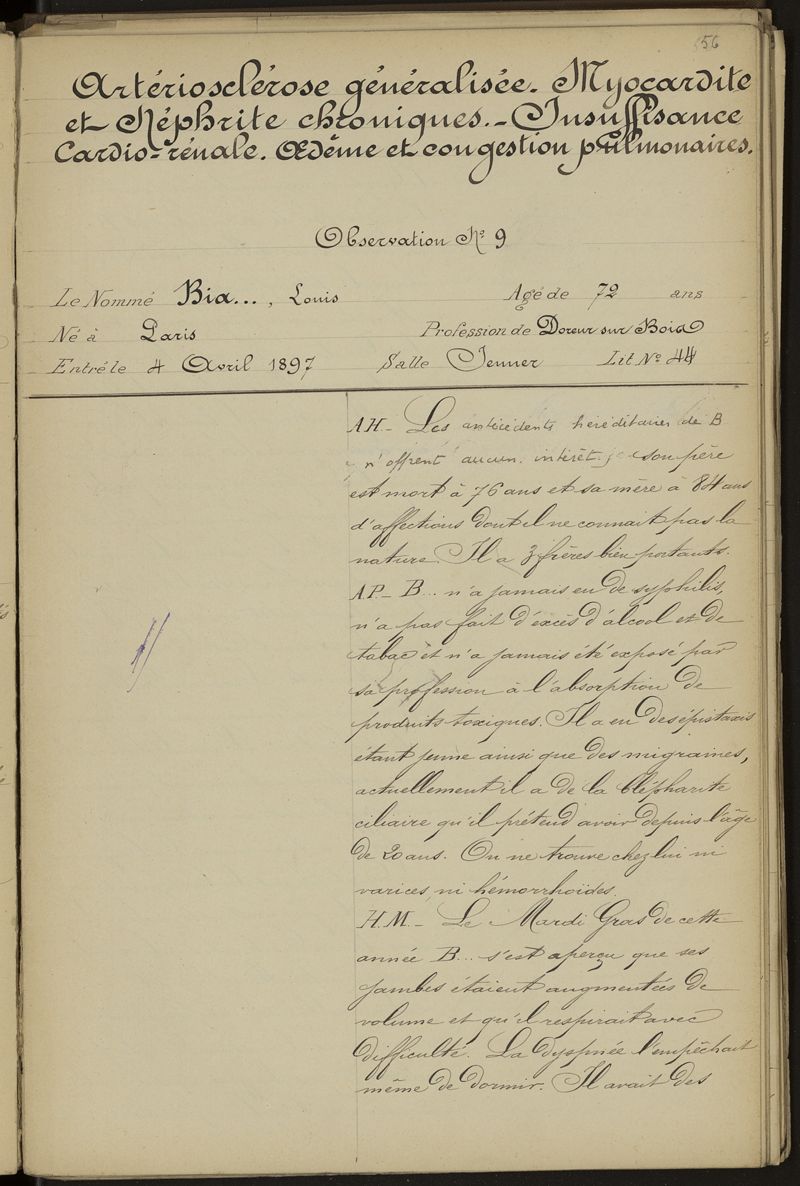 56
Artériosclérose généralisée. Myocardite
et Néphrite chroniques. - Insuffisance
Cardio-rénale. Œdème et congestion pulmonaires.
Observation No 9
Le Nommé Bia..., Louis Agé de 72 ans
Né à Paris Profession de Doreur sur Bois
Entré le 4 Avril 1897 Salle Jenner Lit No 44
AH - Les antécédents héréditaires de B
n'offrent aucun intérêt. son père
est mort à 76 ans et sa mère à 84 ans
d'affections dont il ne connait pas la
nature. Il a 3 frères bien portants.
AP - B... n'a jamais eu de syphilis,
n'a pas fait d'excès d'alcool et de
tabac et n'a jamais été exposé par
sa profession à l'absorption de
produits toxiques. Il a eu des épistaxis
étant jeune ainsi que des migraines,
actuellement il a de la blépharite
ciliaire qu'il prétend avoir depuis l'âge
de 20 ans. On ne trouve chez lui ni
varices, ni hémorrhoïdes.
H.M. - Le Mardi Gras de cette
année B... s'est aperçu que ses
jambes étaient augmentées de
volume et qu'il respirait avec
difficulté. La dyspnée l'empêchait
même de dormir. Il avait des